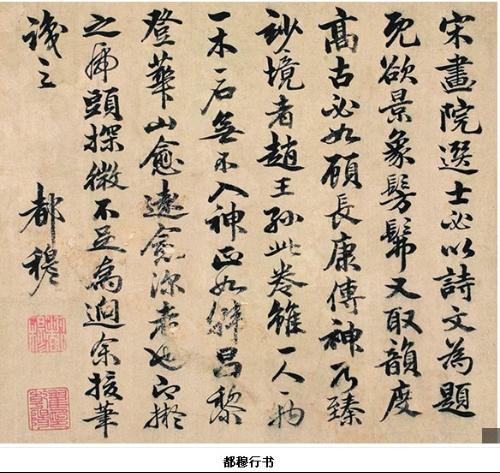 宋畫院選士必以詩文為題
既欲景象髣髴又取韻度
高古必如顧長康傳神乃臻
妙境者趙王孫此卷雖一人
一木一石無不入神正如韓昌黎
登華山愈遠愈深者也擬
之虎頭探微不足為余華
識之
都穆
都穆行书